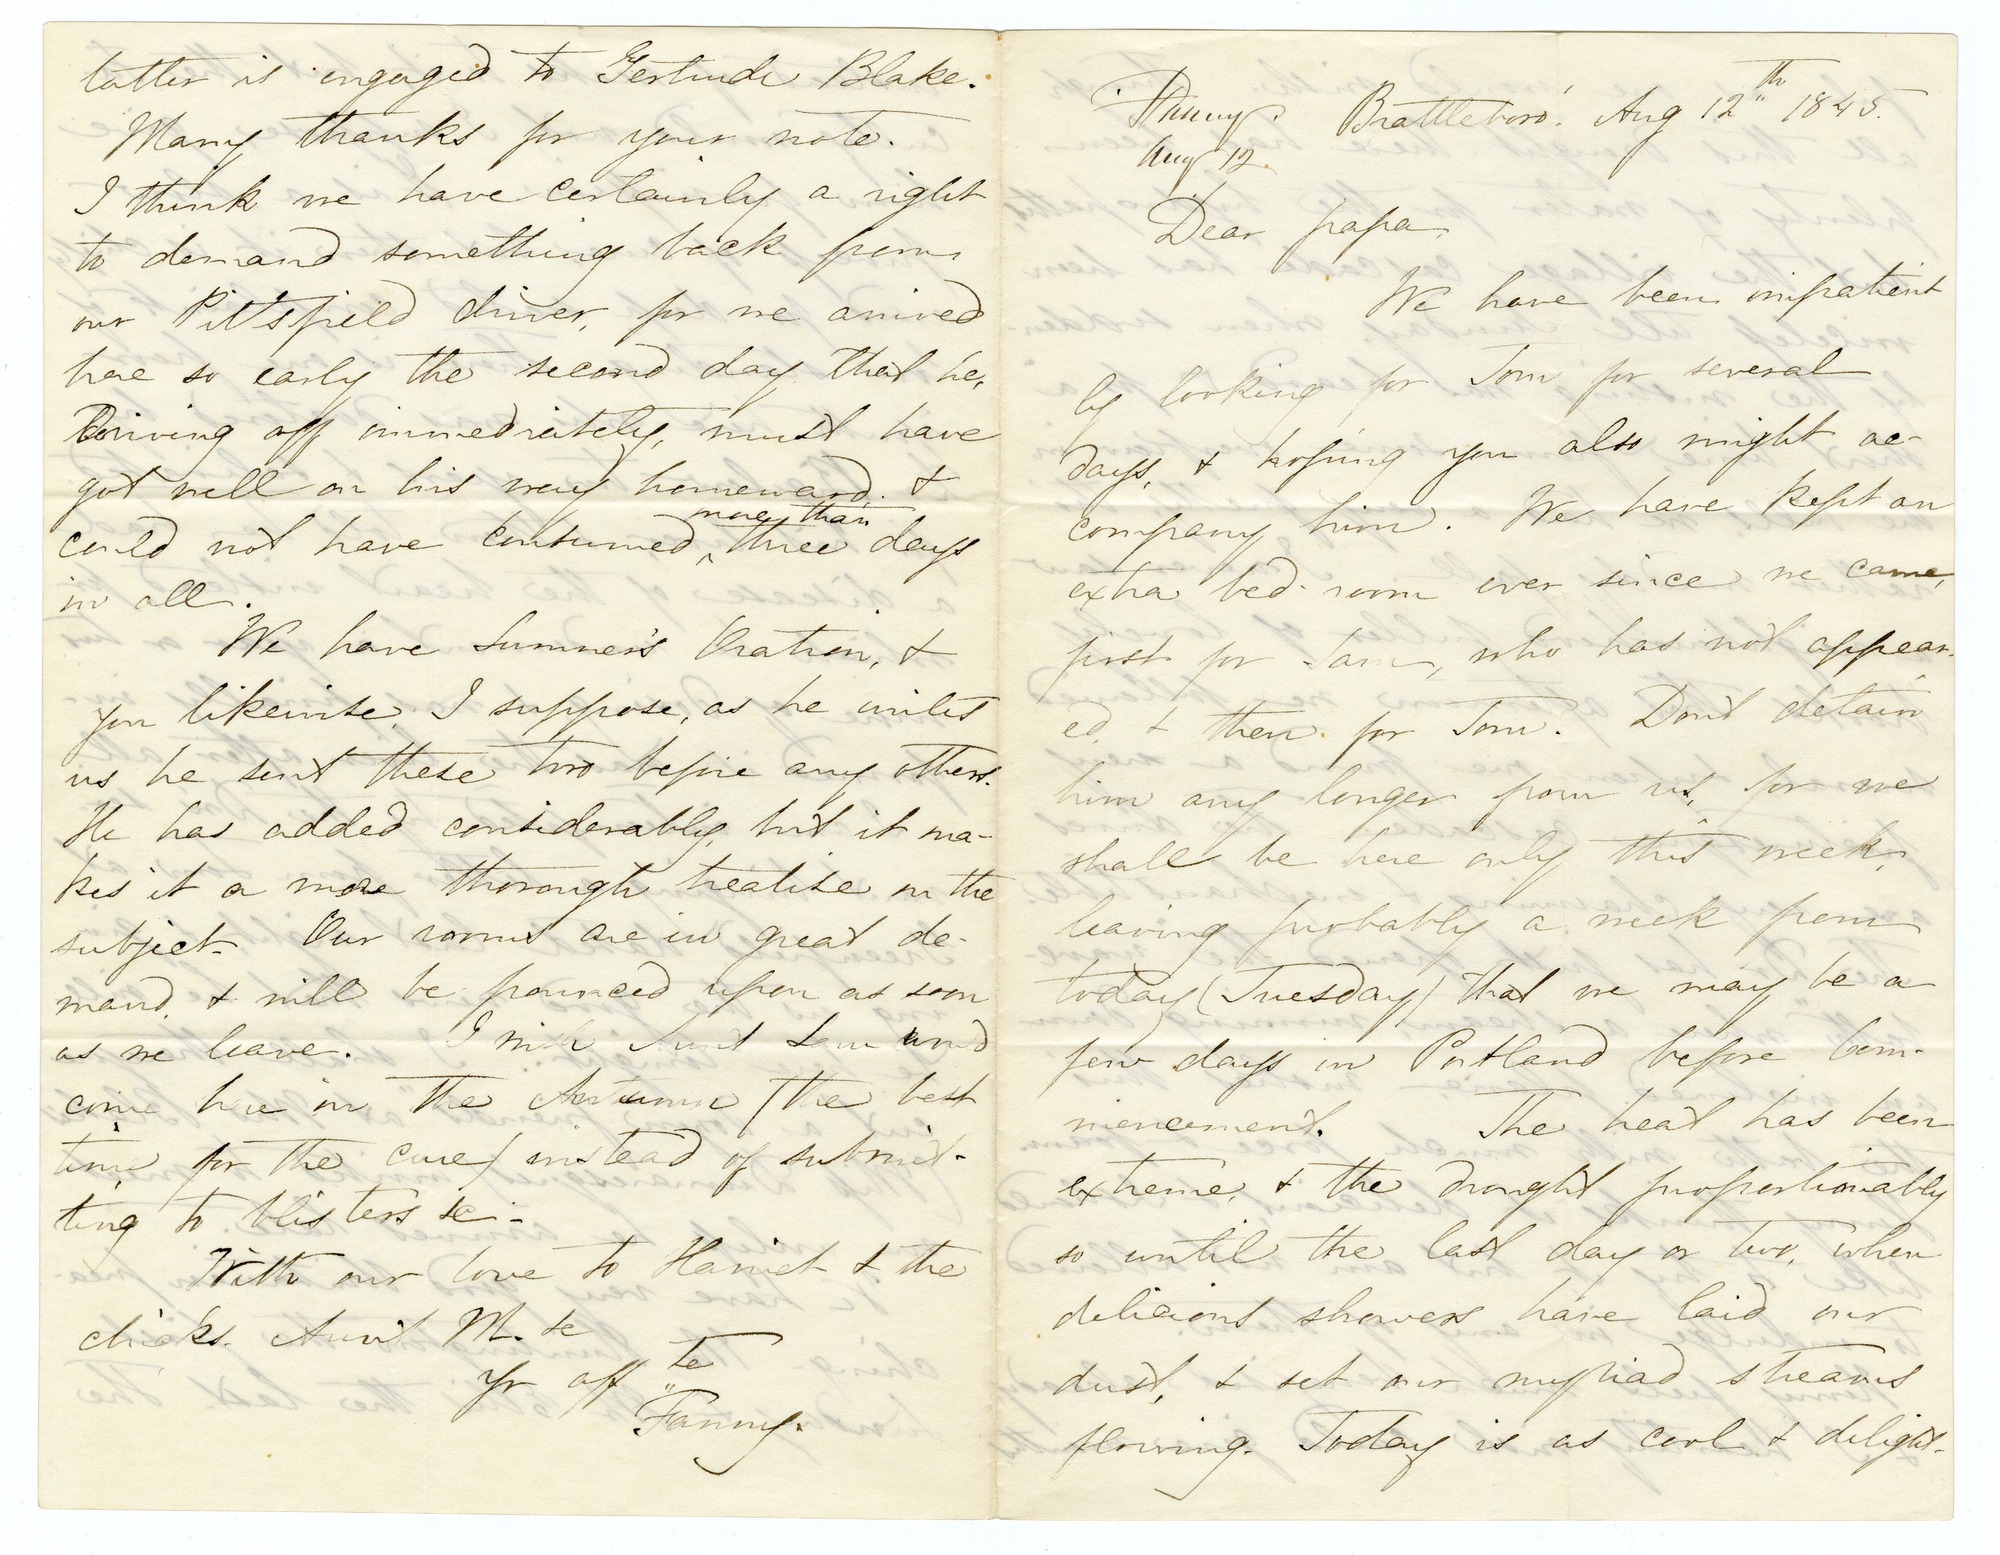 Fanny.
Aug 12.
Brattleboro'. Aug 12th 1845.
Dear papa,
We have been impatient
ly looking for Tom for several
days, & hoping you also might ac-
company him. We have kept an
extra bed-room ever since we came,
first for Sam, who has not appear-
ed, & then for Tom. Don't detain
him any longer from us, for we
shall be here only this week,
leaving probably a week from
today (Tuesday) that we may be a
few days in Portland before Com-
mencement. The heat has been
extreme, & the drought proportionably
so until the last day or two, when
delicious showers have laid our
dust, & set our myriad streams
flowing. Today is as cool & delight-
latter is engaged to Gertrude Blake.
Many thanks for your note.
I think we have certainly a right
to demand something back from
our Pittsfield driver, for we arrived
here so early the second day that he,
driving off immediately, must have
got well on his way homeward, &
could not have consumed ^more than three days
in all.
We have Sumner's Oration, &
you likewise, I suppose, as he writes
us he sent these two before any others.
He has added considerably, but it ma-
kes it a more thorough treatise on the
subject. Our rooms are in great de-
mand, & will be pounced upon as soon
as we leave. I wish Aunt Sam would
come here in the Autumn (the best
time for the cure) instead of submit-
ting to blisters &c -
With our love to Harriet & the
chicks. Aunt M. &c
Yr aff te
Fanny.